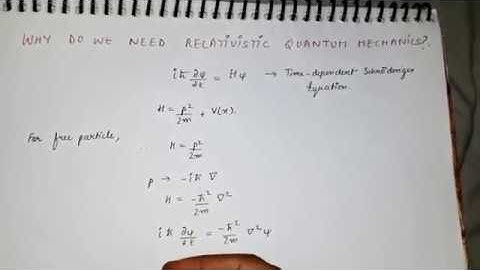 WHY DO WE NEED RELATIVISTIC QUANTUM MECHANICS?
iħ ∂ψ/∂t = Hψ → Time-dependent Schrödinger Equation.
H = p²/2m + V(x).
For free particle,
H = p²/2m
p → -iħ ∇
H = -ħ²/2m ∇²
iħ ∂ψ/∂t = -ħ²/2m ∇²ψ